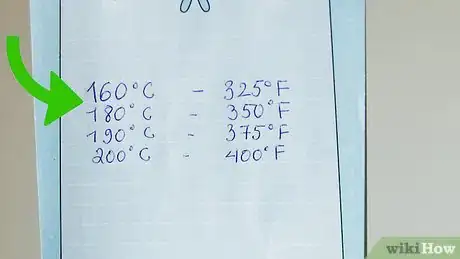 160°C - 325°F
180°C - 350°F
190°C - 375°F
200°C - 400°F
wikiHow